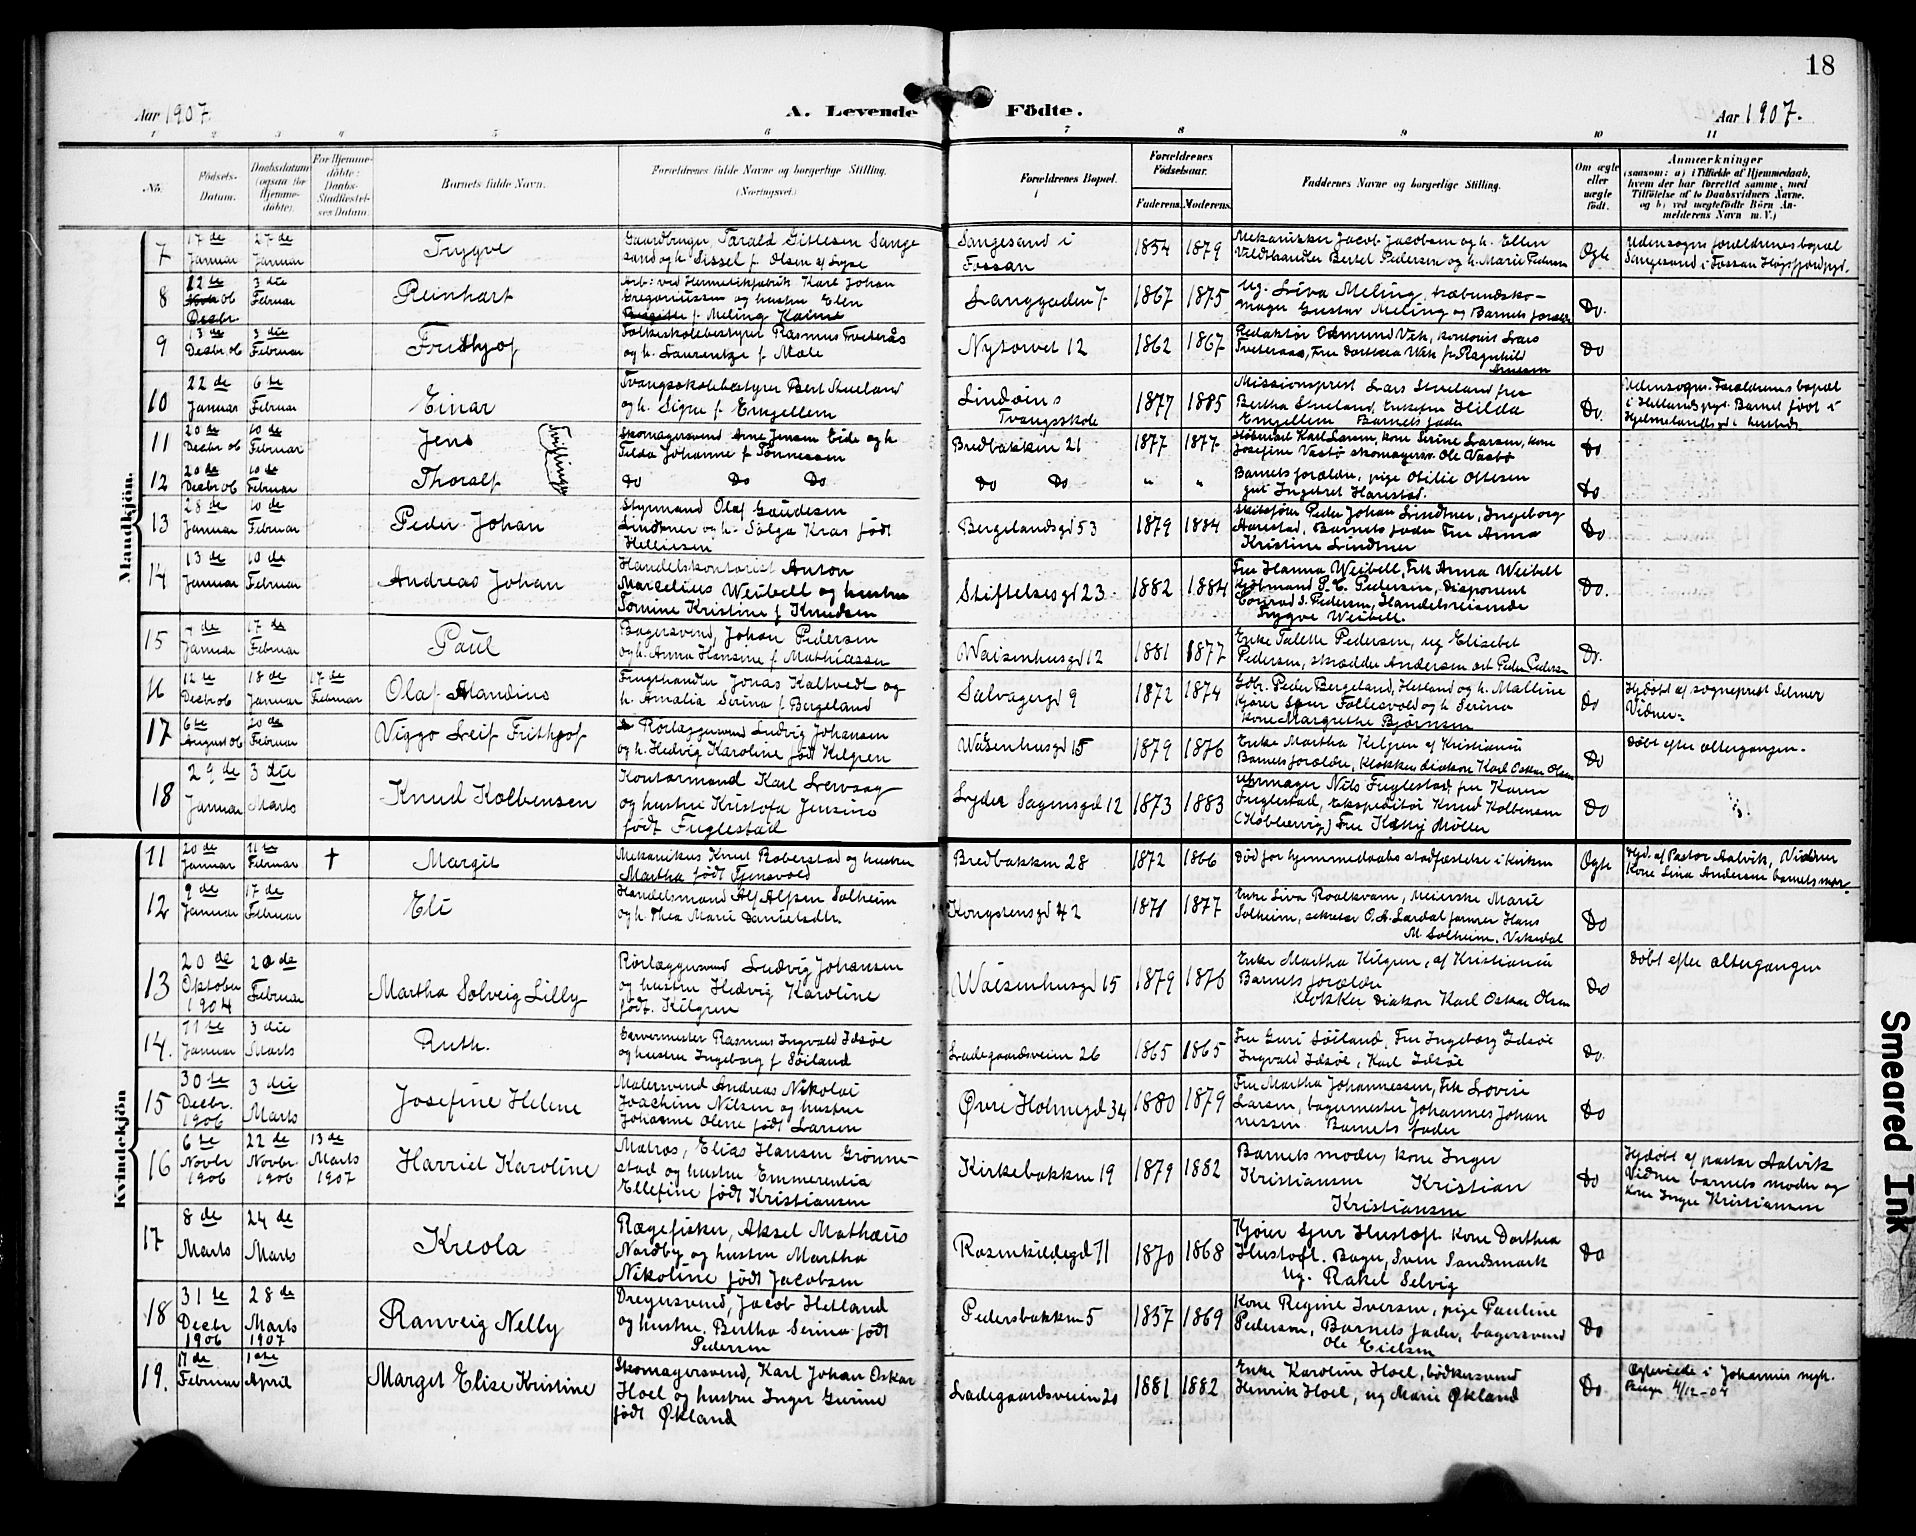 18
Aar 1907
A. Levende
Födte.
Aar 1907.
1 2 3 4 5 6 7 8 9 10 11
No.
Födsels-Datum.
Daabsdatum (ogsaa for Hjemmedöbte).
For Hjemmedöbte: Daabs-Stadfæstelses Datum.
Barnets fulde Navn.
Forældrenes fulde Navne og borgerlige Stilling. (Næringsvei.)
Forældrenes Bopæl.
Forældrenes Födselsaar.
Faderens. Moderens.
Faddernes Navne og borgerlige Stilling.
Om ægte eller uægte födt.
Anmærkninger
(saasom: a) i Tilfælde af Hjemmedaab, hvem der har forrettet samme, med Tilföielse af to Daabsvidners Navne, og b) ved uægtefödte Börn Anmelderens Navn m. V.)
Mandkjön.
7 17de Januar 27de Januar Trygve
Gaardbruger, Tarald Gitlesen Sangesand og h. Sissel f. Olsen
Sangesand i Fossan 1854 1879
Mekaniker Jacob Jacobsen og h. Ellen Vildthandler Bertel Pedersen og h. Marie Pedersen
Ægte
Udensogns forældrenes bopæl Sangesand i Fossan Høgsfjord pgd.
8 22de Decbr 3die Februar Reinhart
Arb: ved Hermetikfabrik Karl Johan Gregoriussen og hustru Ellen f. Meling
Langgaden 7 1867 1875
Ug. Liva Meling, træbundskomager Gustav Meling og Barnets forældre
Do.
9 3de Decbr 06 3die Februar Fridthjof
Folkeskolebestyrer Rasmus Tveteraas og h. Laurentze f. Male
Nytorvet 12 1862 1867
Redaktør Odmund Vik, kontorist Lars Tveteraas, Fru Dorthea Vik, fr. Ragnhild
Do
10 22de Januar 6te Februar Einar
Tvangsskolebestyrer Bert Stueland og h. Signe f. Engellem
Lindøens Tvangsskole 1877 1885
Missionsprest Lars Stueland fru Bertha Stueland, Enkefru Hilda Engellem Barnets fader
Do.
Udensogns. Forældrenes bopæl i Hetlands pgd. Barnet født i
11 20de Decbr 06 10de Februar Jens
Tvillinger
Skomagersvend Arne Jensen Eide og h. Tilda Johanne f. Tønnessen
Bredbakken 21 1877 1877
Karl Larsen, kone Serine Larsen, kone Josefine Vastø skomagersv. Ole Vastø
Do
12 20de Decbr 06 10de Februar Thoralf
Do Do Do
Do Do " "
Barnets forældre, pige Otilie Ottesen gut Ingebret Harestad.
Do
13 28de Januar 10de Februar Peder Johan
Styrmand Olaf Gaudesen Lindtner og h. Salga Kras født Helliesen
Bergelandsgd 53 1879 1884
Skibsfører Peder Johan Lindtner, Ingeborg Aarestad, Barnets fader Fru Anna Kristine Lindtner
Do
14 13de Januar 10de Februar Andreas Johan
Handelskontorist Anton Marcelius Weibell og hustru Tomine Kristine f. Knudsen
Stiftelsesgd 23 1882 1884
Fru Hanna Weibell, Frk Anna Weibell Kjøbmand P. C. Pedersen, Disponent Conrad S. Pedersen, Handelsreisende Trygve Weibell.
Do.
15 Januar 17de Februar Paul
Bagersvend, Johan Pedersen og h. Anna Hansine f. Mathiassen
Waisenhusgd 12 1881 1877
Enke Talette Pedersen, ug Elisebet Pedersen, skrædder Andersen Peder Pedersen
Do.
16 12te Decbr 06 18de Januar 17de Februar Olaf Standius
Frugthandler Jonas Kaltvedt og h. Amalia Serina f. Bergeland
Salvagergd 9 1872 1874
Gdbr. Peder Bergeland, Hetland og h. Malline Kjører Føllesvold og h. Serina Kone Margrethe Bjørnsen
Do
Hjdøbt af sogneprest Selmer Vidner-
17 6te August 06 20de Februar Viggo Leif Frithjof
Rørlæggersvend Ludvig Johansen og h. Hedvig Karoline født Kilgren
Waisenhusgd 15 1879 1876
Enke Martha Kilgren af Kristiania Barnets forældre, Klokker diakon Karl Oskar Olsen
Do
Døbt efter altergangen.
18 29de Januar 3die Marts Knud Kolbensen
Kontormand Karl Lervaag og hustru Kristofa Jensine født Fuglestad
Lyder Sagensgd 12 1873 1883
Uhrmager Nils Fuglestad fru Karen Fuglestad, Ekspeditør Knud Kolbensen (Kobbervig) Fru Kathy Møller
Do
Kvindekjön
11 20de Januar 11te Februar † Margit
Mekanikus Knut Roberstad og hustru Martha født Tjensvold
Bredbakken 28 1872 1866
Død før hjemmedaabs stadfæstelse i Kirken
Ægte
Hjd. af Pastor Aalvik, Vidner Kone Lina Andersen barnets mor.
12 9de Januar 17de Februar Eli
Handelsmand Alf Alfsen Solheim og h. Thea Marie Danielsdtr.
Kongstensgd 42 1871 1877
Enke Liva Roalkvam, Meierske Marie Solheim, sekretær O. A. Lardal farver Hans M. Solheim, Vikedal
Do
13 20de Oktober 1904 20de Februar Martha Solveig Lilly
Rørlæggersvend Ludvig Johansen og hustru Hedvig Karoline født Kilgren
Waisenhusgd 15 1879 1876
Enke Martha Kilgren, af Kristiania Barnets forældre Klokker Diakon Karl Oskar Olsen
Do
Døbt efter altergangen
14. 11te Januar 3die Marts Ruth.
Garvermester Rasmus Ingvald Idsøe og hustru Ingeborg f. Søiland
Ladegaardsveien 26 1865 1865
Fru Guri Søiland, Fru Ingeborg Idsøe Ingvald Idsøe, Karl Idsøe
Do.
15 30te Decbr. 1906 3die Marts Josefine Helene
Malersvend Andreas Nikolai Joachim Nilsen og hustru Johanne Olene født Larsen
Øvre Holmegd 34 1880 1879
Fru Martha Johannessen, Frk Lovise Larsen, bagermester Johannes Johannessen. Barnets fader
Do
16 6te Novbr 1906 22de Novbr. 1906 13de Marts 1907 Harriet Karoline
Matros, Elias Hansen Grønnestad og hustru Emmerentia Ellefine født Kristiansen
Kirkebakken 19 1879 1882
Barnets moder, kone Inger Kristiansen Kristian Kristiansen
Do
Hjdøbt af pastor Aalvik Vidner barnets moder og Kone Inger Kristiansen
17 8de Marts 24de Marts Kreola
Rægefisker, Aksel Mathæus Nordby og hustru Martha Nikoline født Jacobsen
Rosenkildegd 71 1870 1868
Kjører Sjur Hustoft Kone Dorthea Hustoft. Bager, Sven Sandsmark Ug. Rakel Selvig
Do
18 31te Decbr 1906 28de Marts 1907 Ranveig Nelly
Dreyersvend, Jacob Hetland og hustru. Bertha Serina født Pedersen
Pedersbakken 5 1857 1869
Kone Regine Iversen, pige Pauline Pedersen, Barnets fader, bagersvend Ole Eielsen
Do
19. 17de Februar 1ste April Margit Elise Kristine
Skomagersvend, Karl Johan Oskar Hoel og hustru Inger Gurine født Økland
Ladegaardsveien 20 1881 1882
Enke Karoline Hoel, bødkersvend Henrik Hoel, ug Marie Økland
Do.
Ægteviede i Johannes mgh. Bergen 4/12-04
Smeared Ink